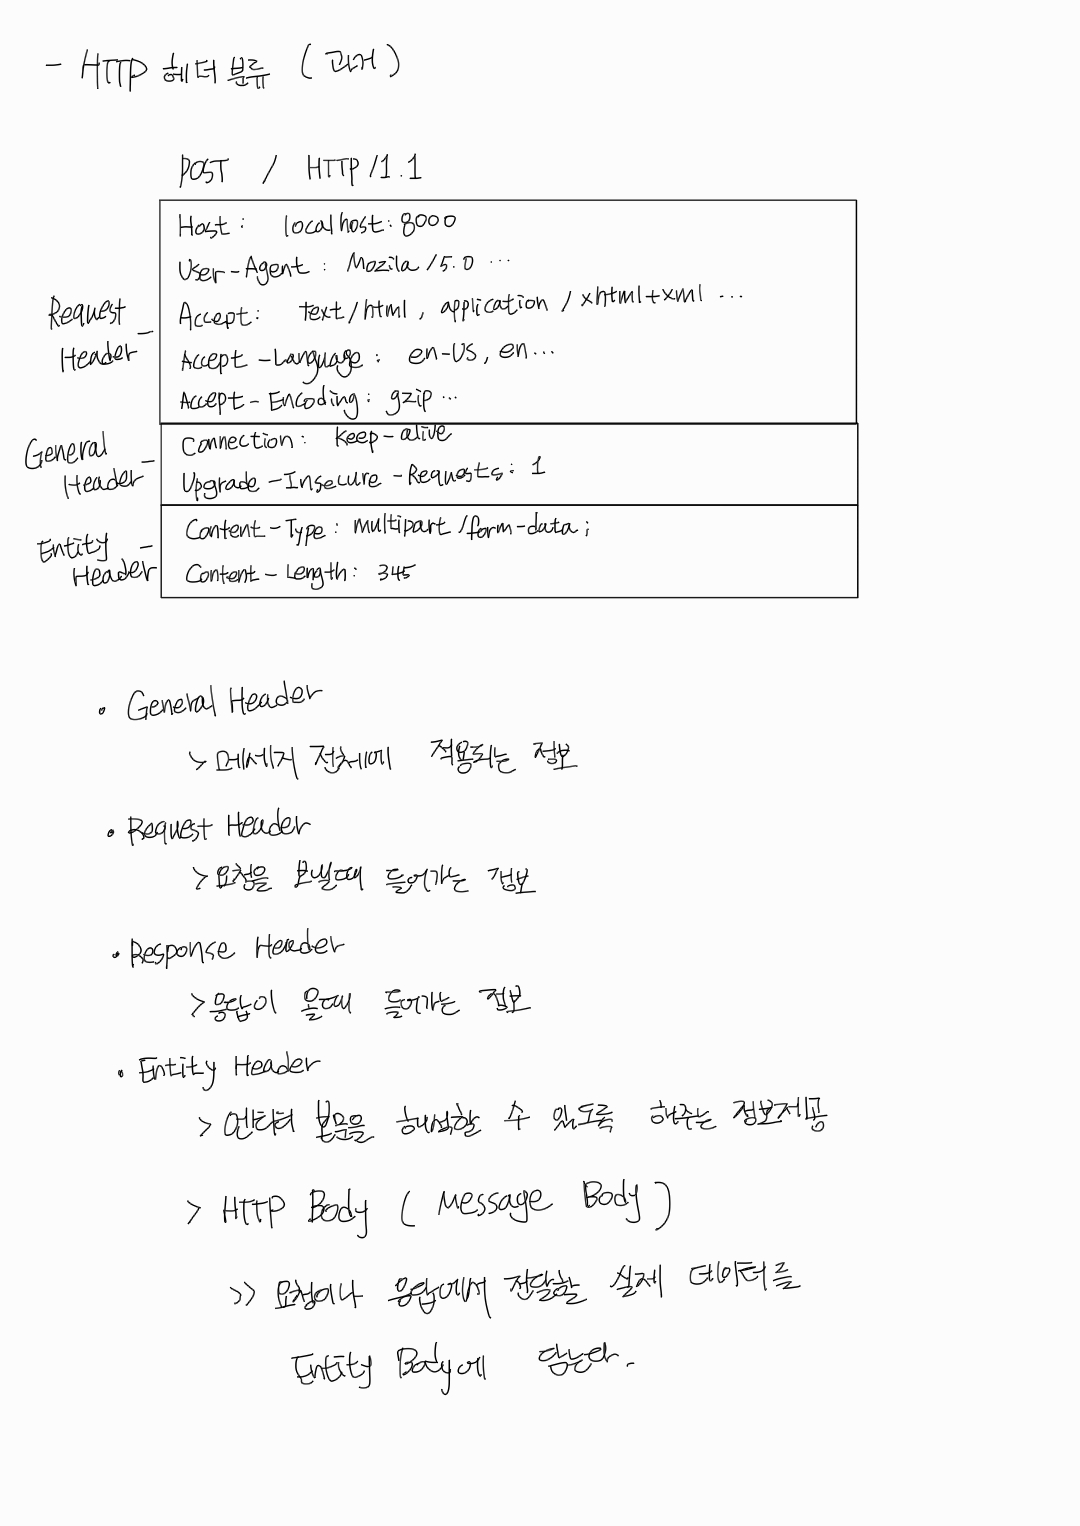 - HTTP 헤더 분류 (과거)
POST / HTTP/1.1
Host: localhost:8000
User-Agent: Mozila/5.0 ...
Accept: text/html, application/xhtml+xml ...
Accept-Language: en-US, en...
Accept-Encoding: gzip ...
Request
Header -
Connection: keep-alive
Upgrade-Insecure-Requests: 1
General
Header -
Content-Type: multipart/form-data;
Content-Length: 345
Entity -
Header
• General Header
> 메세지 전체에 적용되는 정보
• Request Header
> 요청을 보낼때 들어가는 정보
• Response Header
> 응답이 올때 들어가는 정보
• Entity Header
> 엔티티 본문을 해석할 수 있도록 해주는 정보제공
> HTTP Body (Message Body)
>> 요청이나 응답에서 전달할 실제 데이터를
Entity Body에 담는다.